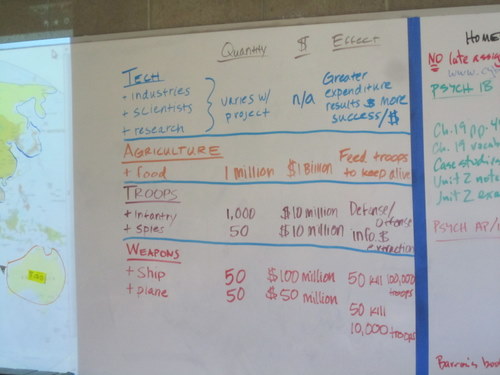 Quantity $ Effect
TECH
+ industries
+ scientists
+ research
varies w/
project
n/a
Greater
expenditure
results $ more
success/$
AGRICULTURE
+ food 1 million $1 Billion Feed troops
to keep alive
TROOPS
+ infantry 1,000 $10 million Defense/
offense
+ spies 50 $10 million info $
extraction
WEAPONS
+ ship 50 $100 million 50 kill 100,000
troops
+ plane 50 $50 million 50 kill
10,000 troops
HOME
NO late assig
www.
PSYCH 18
Ch. 19 pp. 4
Ch. 19 vocab
Case studies
Unit 2 note
Unit 2 exa
PSYCH AP/
Barron's boo